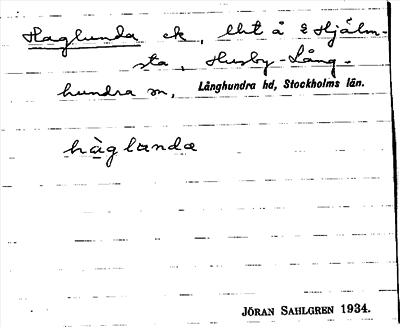 Haglunda ek, lht å Hjälm-
sta, Husby-Lång-
hundra sn, Långhundra hd, Stockholms län.
hàglunda
JÖRAN SAHLGREN 1934.